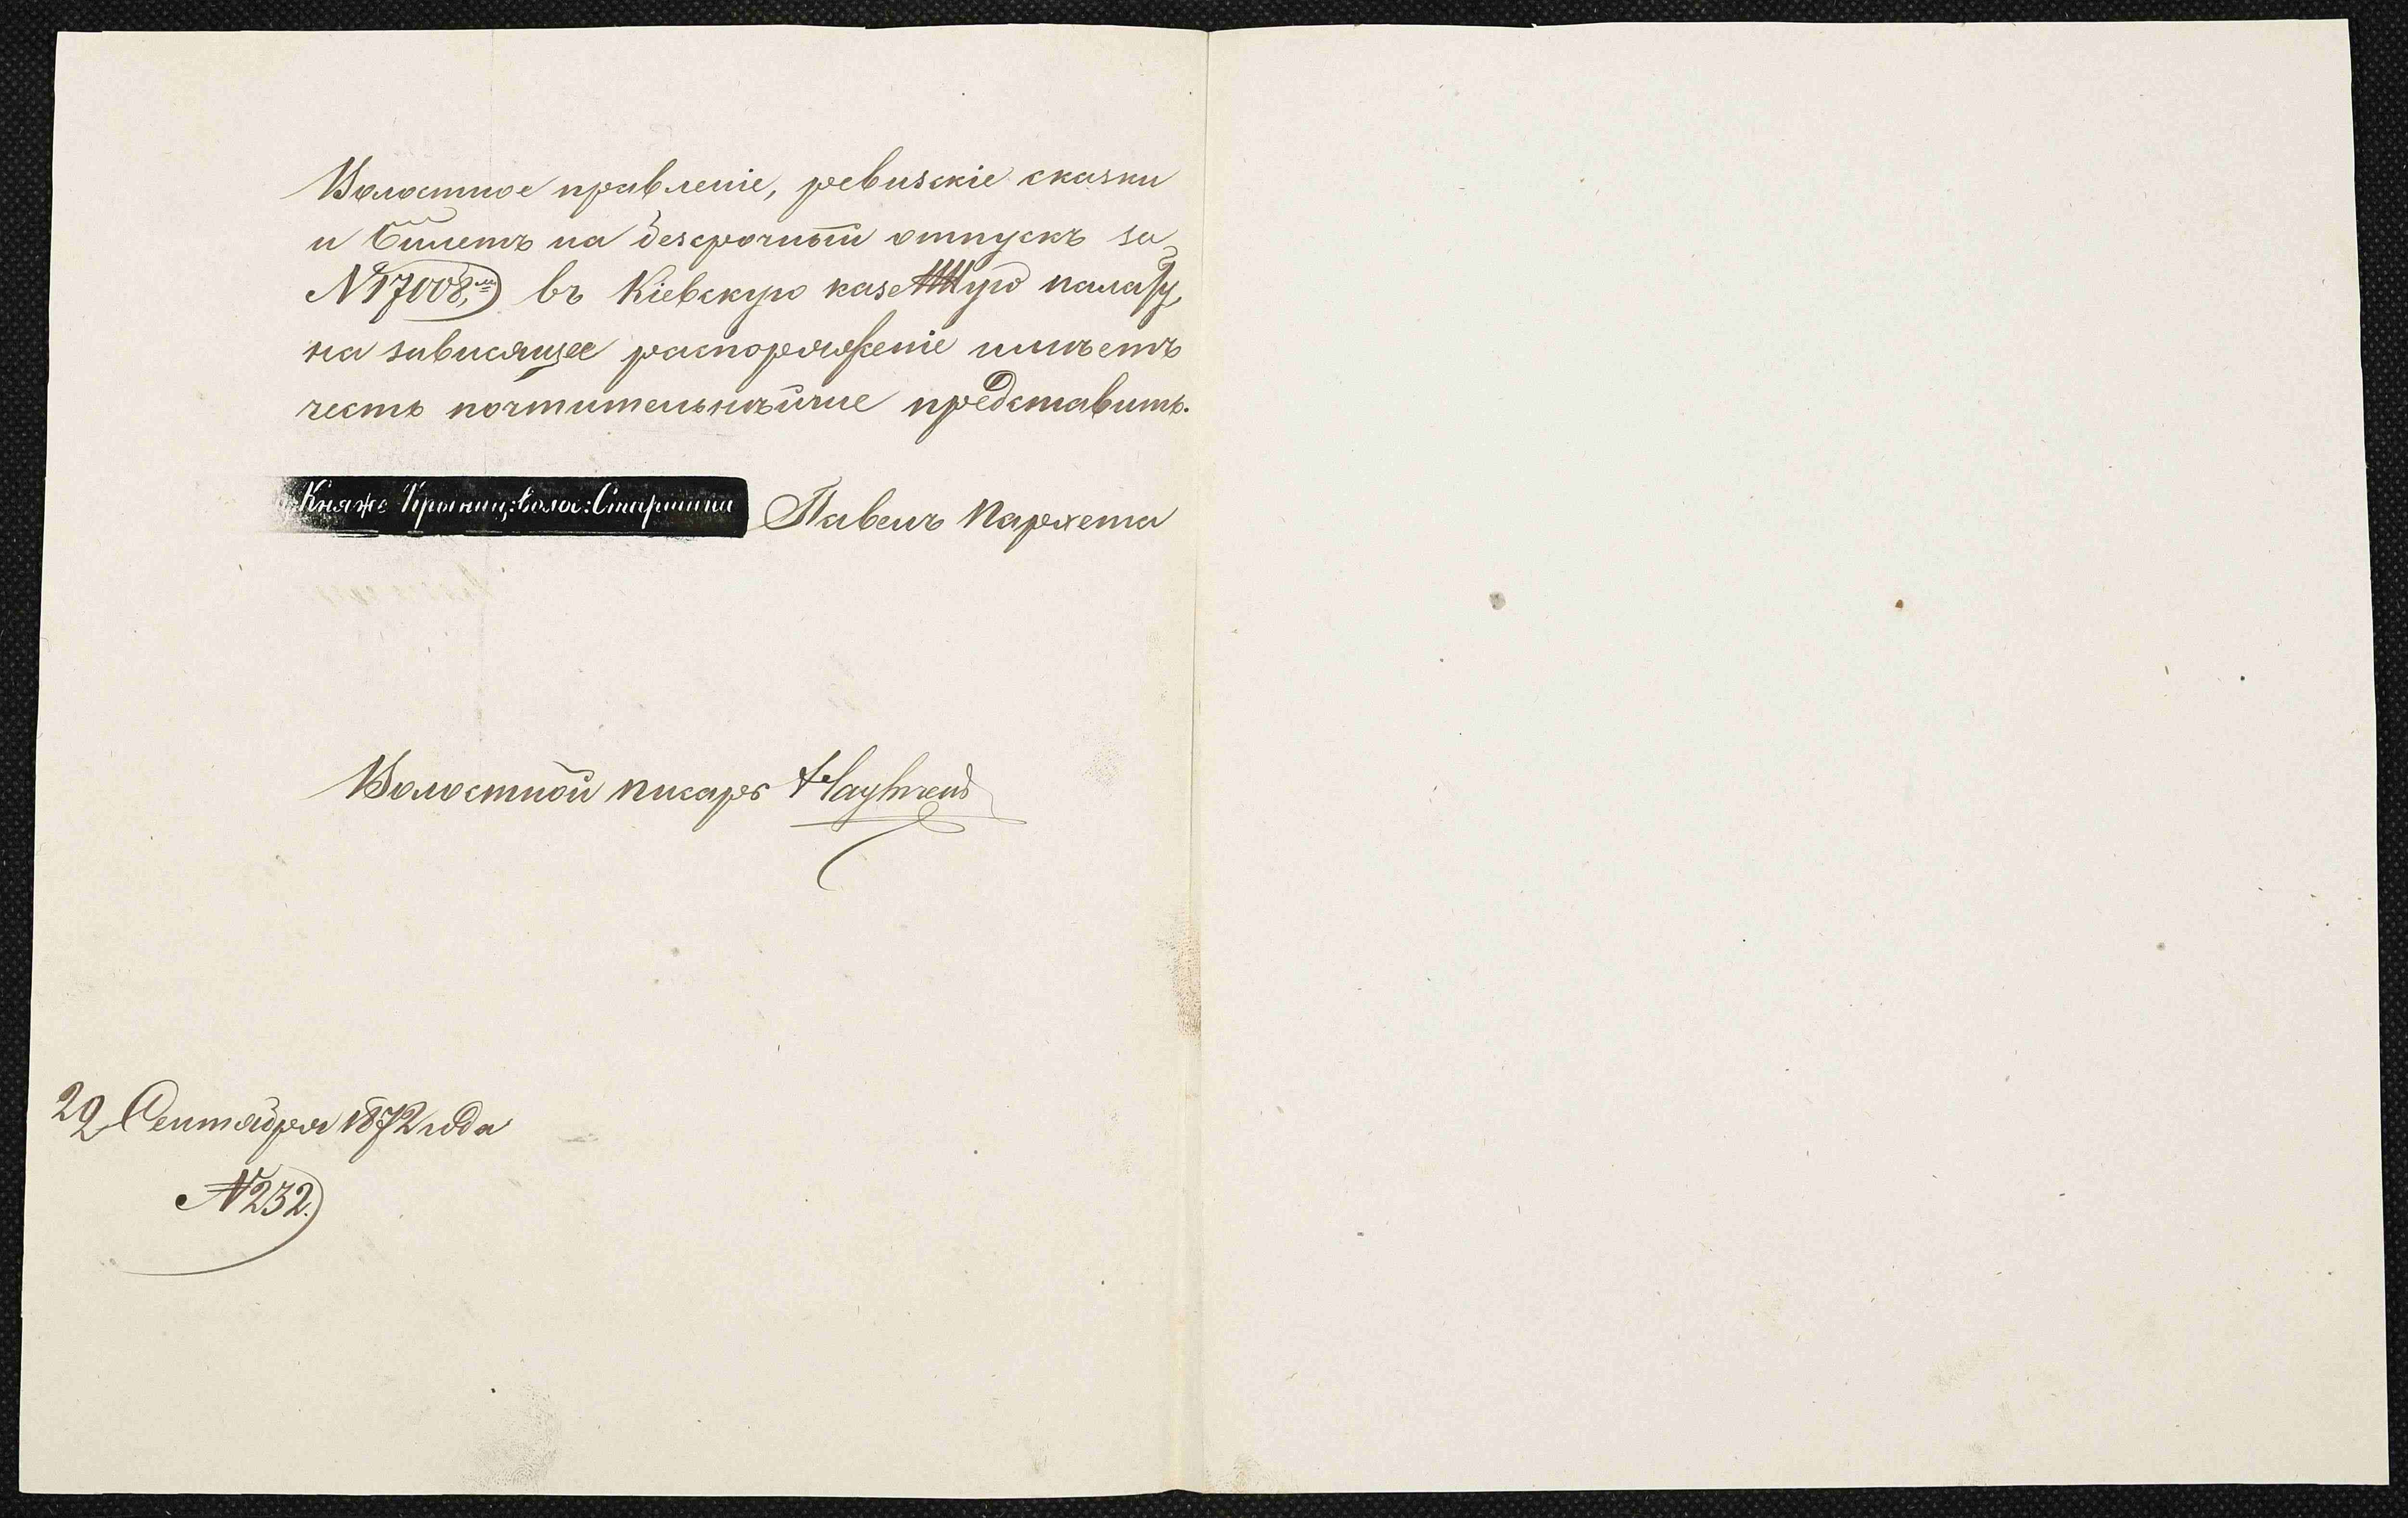 Волостное правленіе, ревизскіе сказки
и билетъ на безсрочный отпускъ за
№ 17008мъ въ Кіевскую казенную палату,
на зависящее распоряженіе имѣетъ
честь почтительнѣйше представить.
Княже Крыниц: Волос: Старшина Павелъ Пархета
Волостной писарь
29 Сентября 1872 года
№ 232.